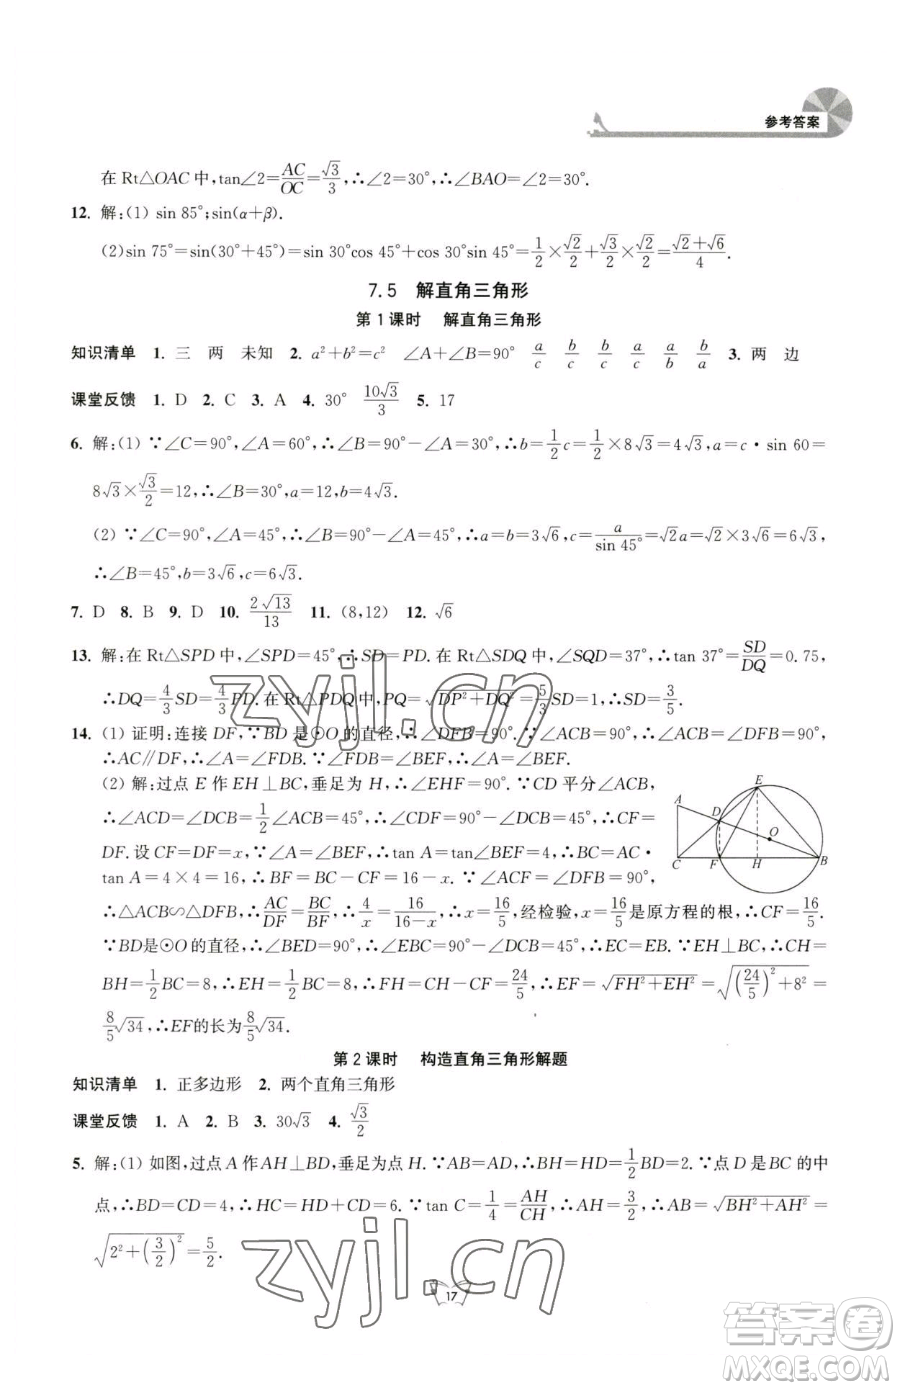 参考答案
在 Rt△OAC 中,tan∠2=AC/OC=√3/3,∴∠2=30°,∴∠BAO=∠2=30°.
12. 解:(1) sin 85°;sin(α+β).
(2)sin 75°=sin(30°+45°)=sin 30°cos 45°+cos 30°sin 45°=1/2×√2/2+√3/2×√2/2=(√2+√6)/4.
7.5 解直角三角形
第1课时 解直角三角形
知识清单 1. 三 两 未知 2. a²+b²=c² ∠A+∠B=90° a/c b/c b/c a/c a/b b/a 3. 两 边
课堂反馈 1. D 2. C 3. A 4. 30° 10√3/3 5. 17
6. 解:(1) ∵∠C=90°,∠A=60°,∴∠B=90°-∠A=30°,∴b=1/2c=1/2×8√3=4√3,a=c·sin 60=
8√3×√3/2=12,∴∠B=30°,a=12,b=4√3.
(2) ∵∠C=90°,∠A=45°,∴∠B=90°-∠A=45°,∴a=b=3√6,c=a/sin 45°=√2a=√2×3√6=6√3,
∴∠B=45°,b=3√6,c=6√3.
7. D 8. B 9. D 10. 2√13/13 11. (8,12) 12. √6
13. 解:在 Rt△SPD 中,∠SPD=45°,∴SD=PD. 在 Rt△SDQ 中,∠SQD=37°,∴tan 37°=SD/DQ=0.75,
∴DQ=4/3SD=4/3PD. 在 Rt△PDQ 中,PQ=√(DP²+DQ²)=5/3SD=1,∴SD=3/5.
14. (1) 证明:连接 DF,∵BD 是⊙O 的直径,∴∠DFB=90°.∵∠ACB=90°,∴∠ACB=∠DFB=90°,
∴AC∥DF,∴∠A=∠FDB.∵∠FDB=∠BEF,∴∠A=∠BEF.
(2) 解:过点 E 作 EH⊥BC,垂足为 H,∴∠EHF=90°.∵CD 平分∠ACB,
∴∠ACD=∠DCB=1/2∠ACB=45°,∴∠CDF=90°-∠DCB=45°,∴CF=
DF. 设 CF=DF=x,∵∠A=∠BEF,∴tan A=tan∠BEF=4,∴BC=AC·
tan A=4×4=16,∴BF=BC-CF=16-x.∵∠ACB=∠DFB=90°,
∴△ACB∽△DFB,∴AC/DF=BC/BF,∴4/x=16/(16-x),∴x=16/5,经检验,x=16/5是原方程的根,∴CF=16/5.
∵BD是⊙O的直径,∴∠BED=90°,∴∠EBC=90°-∠DCB=45°,∴EC=EB.∵EH⊥BC,∴CH=
BH=1/2BC=8,∴EH=1/2BC=8,∴FH=CH-CF=24/5,∴EF=√(FH²+EH²)=√((24/5)²+8²)=
8/5√34,∴EF的长为8/5√34.
A D E O C F H B
第2课时 构造直角三角形解题
知识清单 1. 正多边形 2. 两个直角三角形
课堂反馈 1. A 2. B 3. 30√3 4. √3/2
5. 解:(1) 如图,过点 A 作 AH⊥BD,垂足为点 H.∵AB=AD,∴BH=HD=1/2BD=2.∵点 D 是BC 的中
点,∴BD=CD=4,∴HC=HD+CD=6.∵tan C=1/4=AH/CH,∴AH=3/2,∴AB=√(BH²+AH²)=
√(2²+(3/2)²)=5/2.
17
zyjl.cn
zyjl.cn
答案圈
MXQE.COM